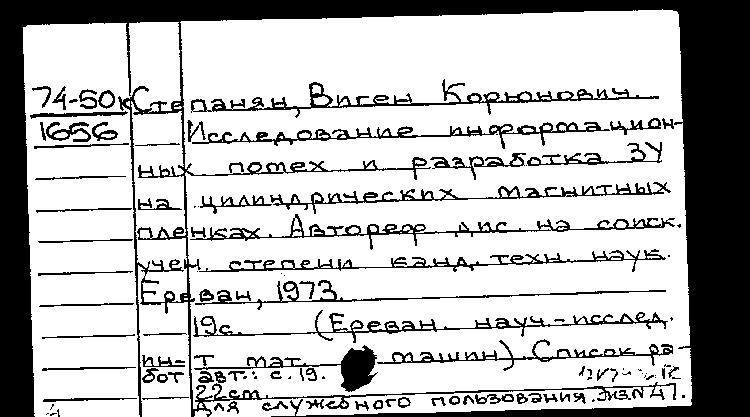 74-50к Степанян, Виген Корюнович.
1656 Исследование информацион-
ных помех и разработка ЗУ
на цилиндрических магнитных
пленках. Автореф дис. на соиск.
учен. степени канд. техн. наук.
Ереван, 1973.
19с. (Ереван. науч.-исслед.
ин-т мат. машин). Список ра-
бот авт.: с.19.
22см.
Для служебного пользования. Экз№47.